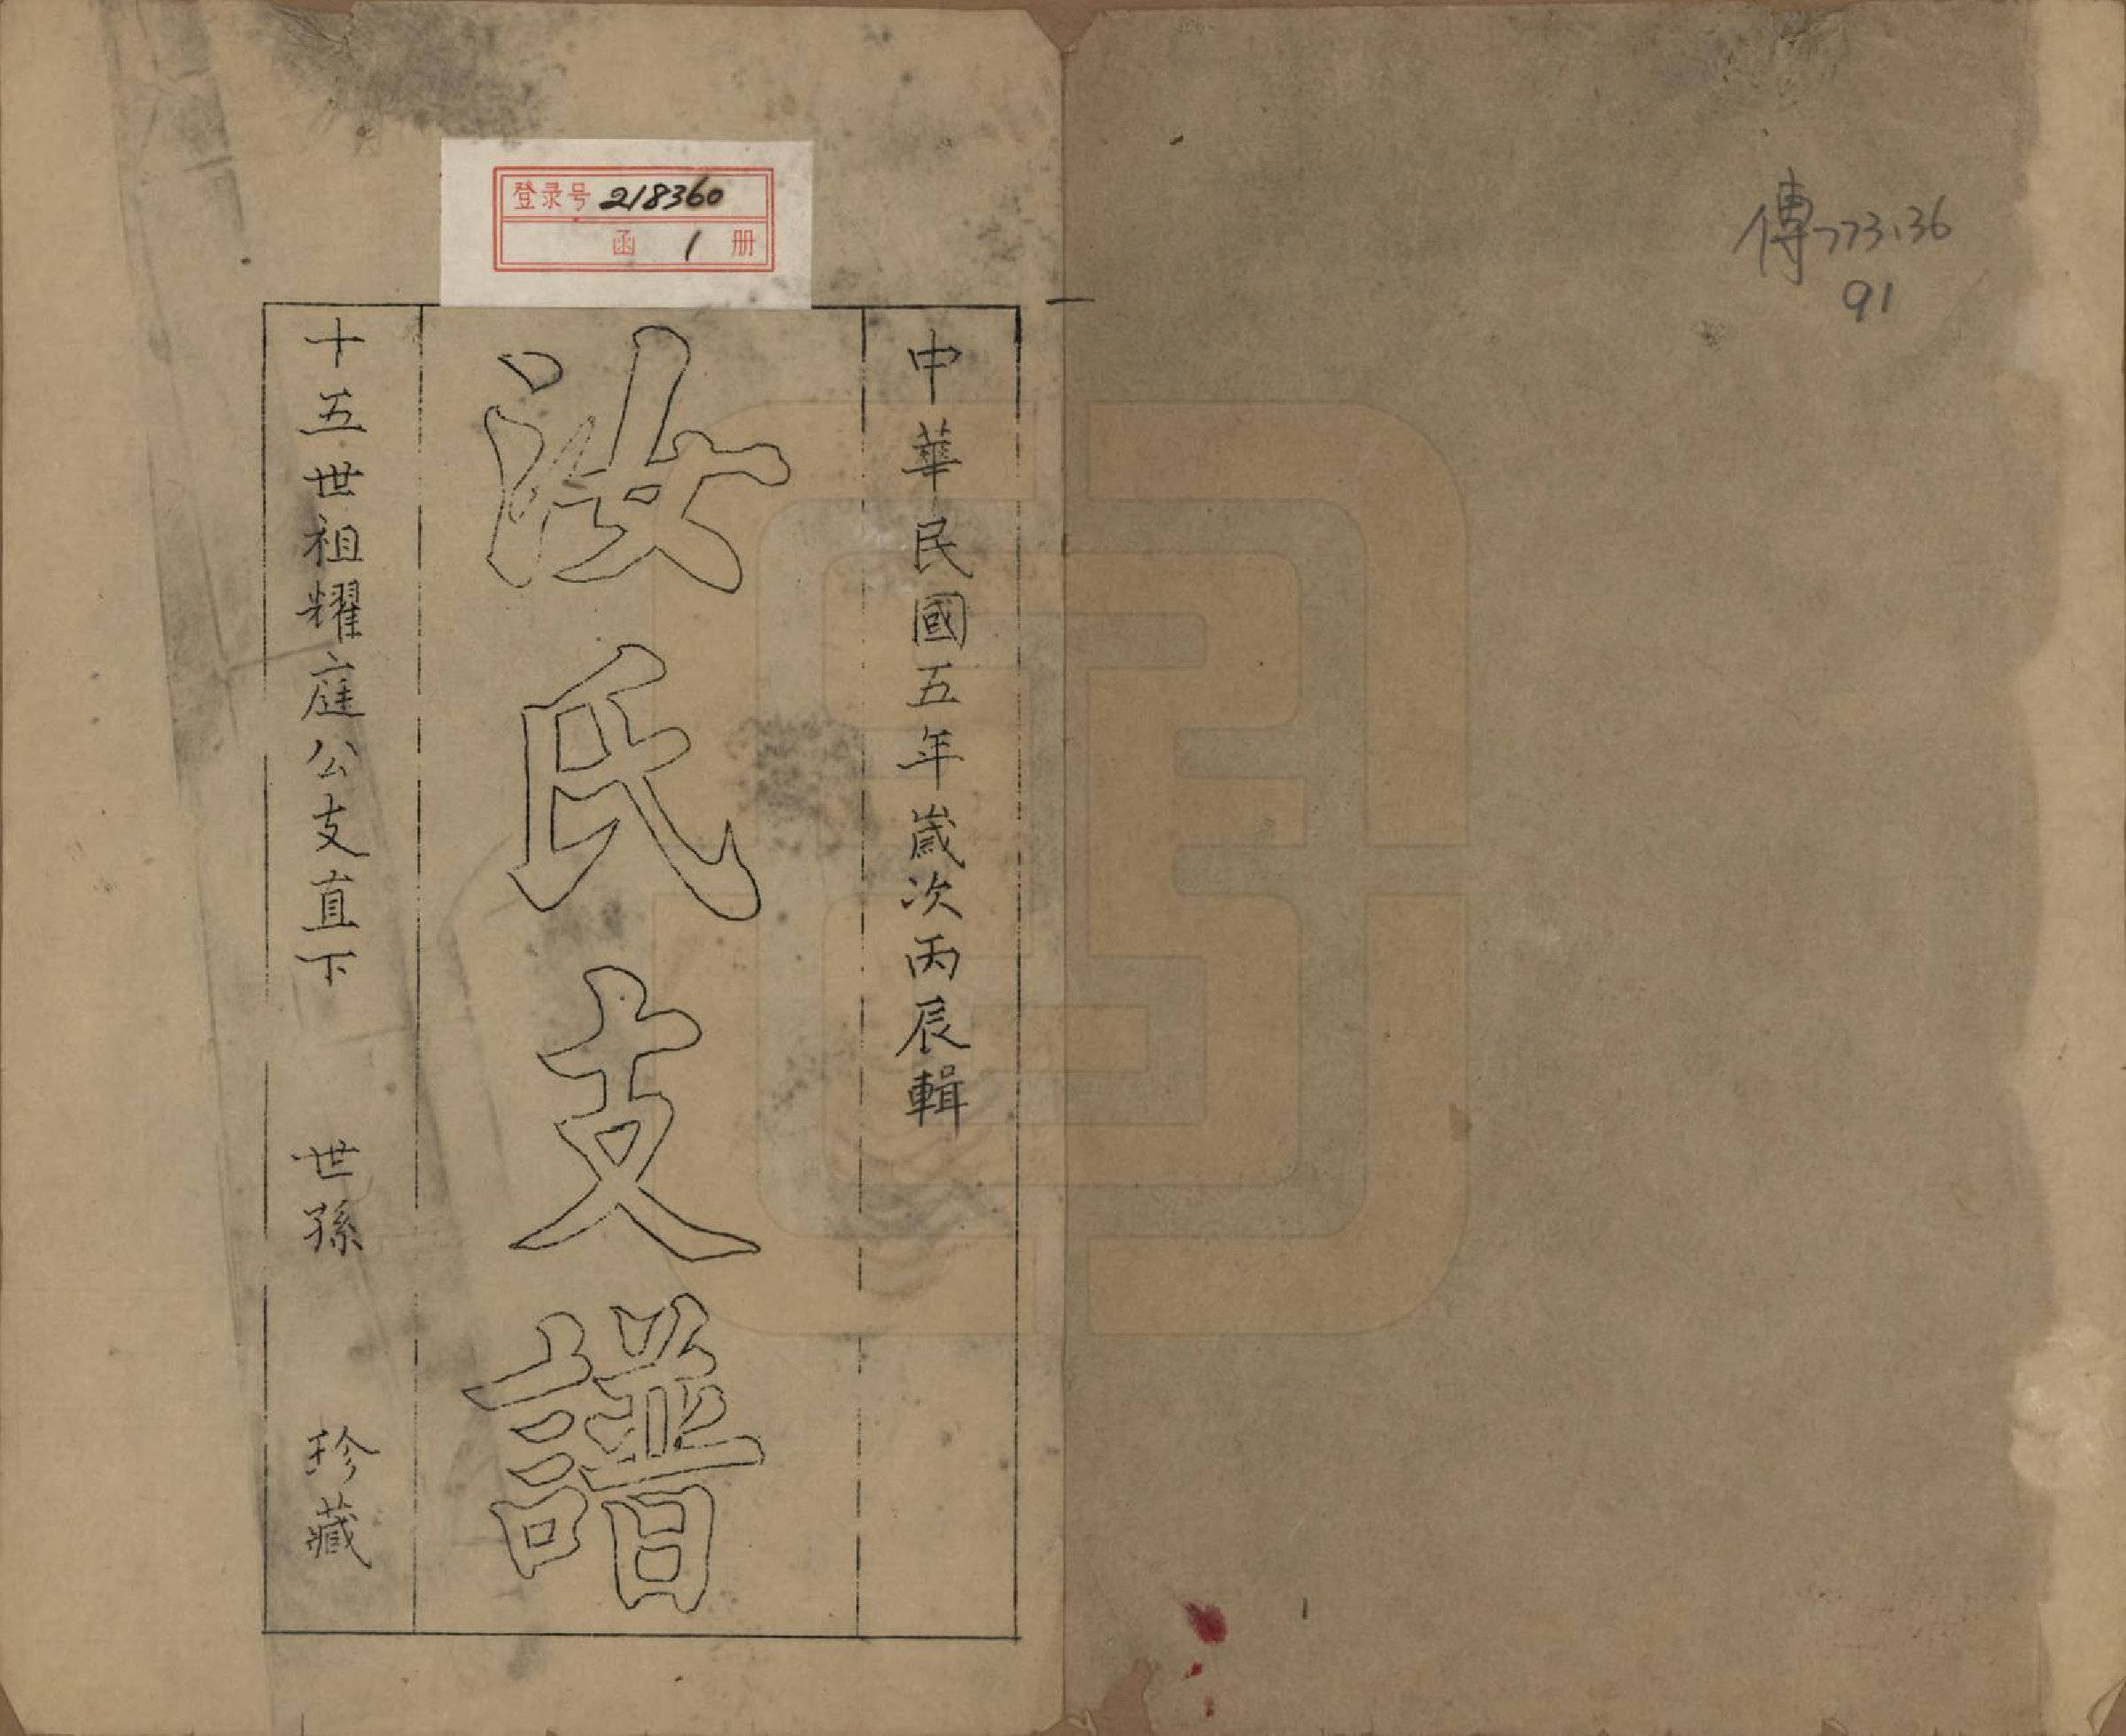 傳773.36
91
中華民國五年嵗次丙辰輯
汝氏支譜
十五世祖耀庭公支直下 世孫 珍藏
登录号 218360
函 1 册